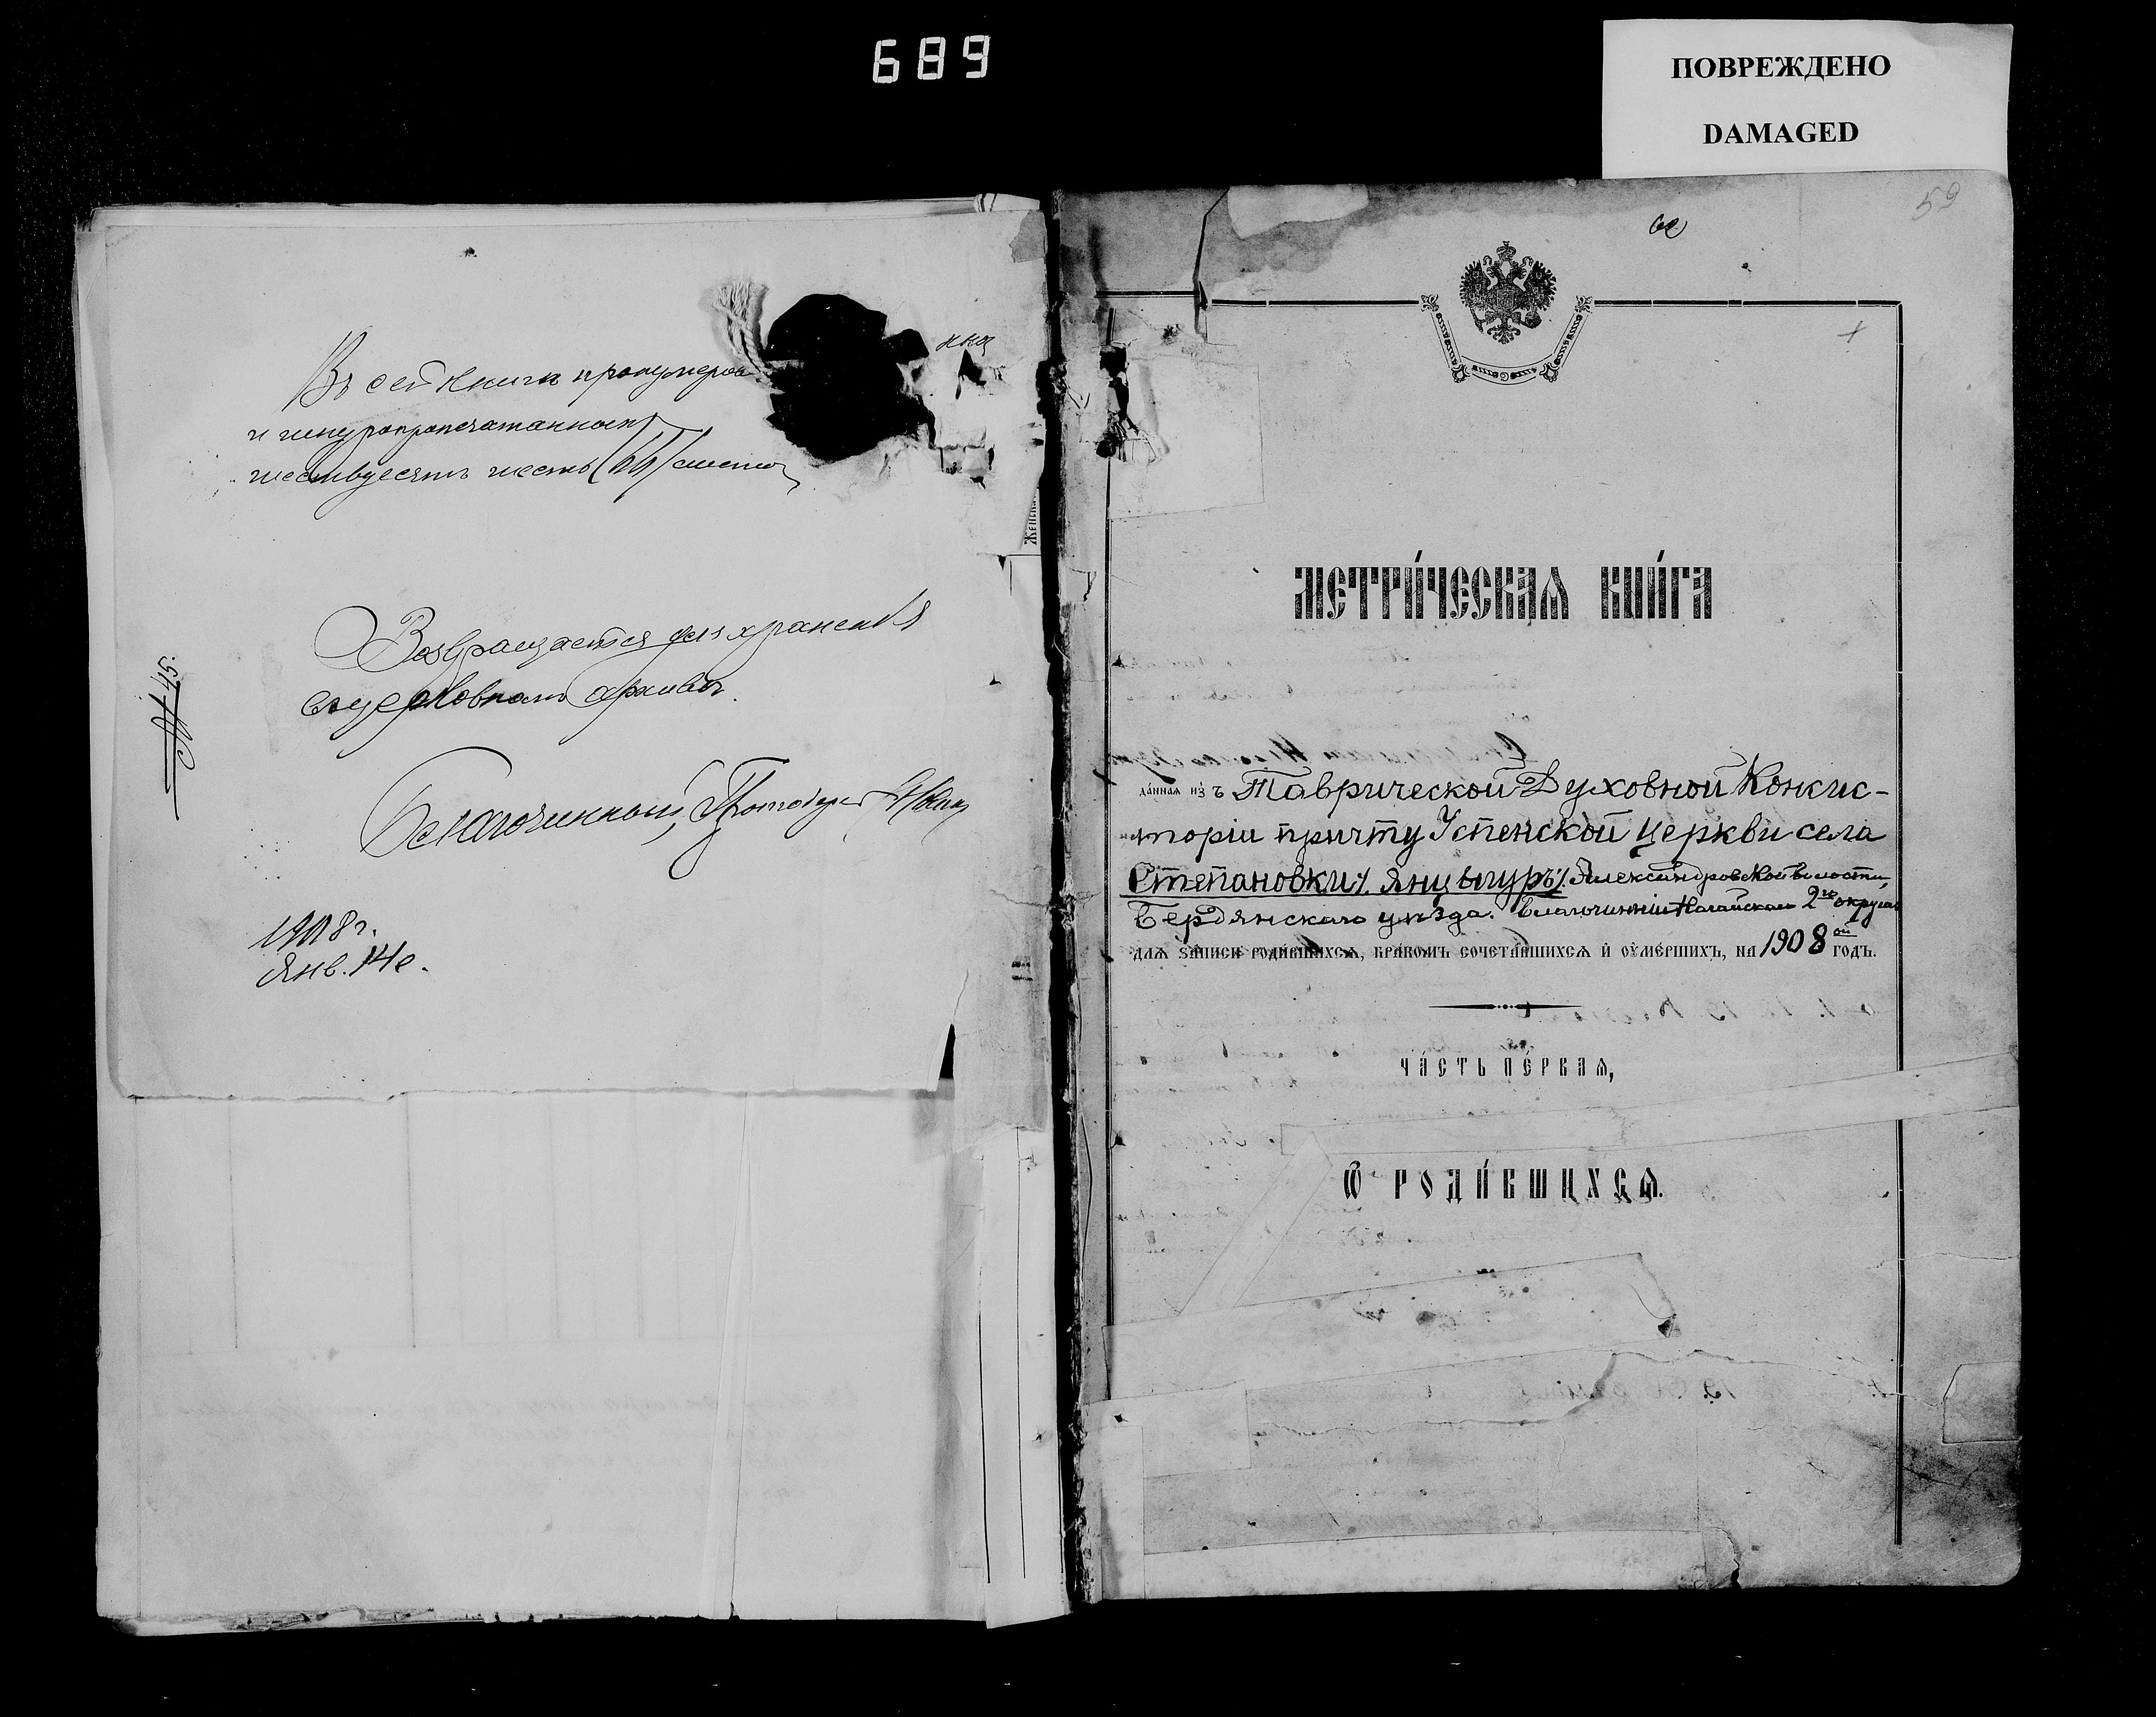 689
ПОВРЕЖДЕНО
DAMAGED
Въ сей книгѣ пронумеров
и шнуропропечатанныхъ
шестьдесятъ шесть (66) листов
Возвращается для хранения
въ церковномъ архивѣ.
Благочинный, Протоіерей
1908 г.
Янв. 14 д.
59
МЕТРИ́ЧЕСКАѦ КНИ́ГА
да́нная из̾ Таврической Духовной Консис-
торіи причту Успенской церкви села
Степановки /. Янцыгуръ /. Александровской волости,
Бердянскаго уѣзда. Благочинія Ногайскаго 2го округа
длѧ за́писи роди́вшихсѧ, бра́комъ сочета́вшихсѧ и҆ ᲂу҆ме́ршихъ, на 1908ой годъ.
ЧА́СТЬ ПЕ́РВАѦ,
Ѽ РОДИ́ВШИХСѦ.